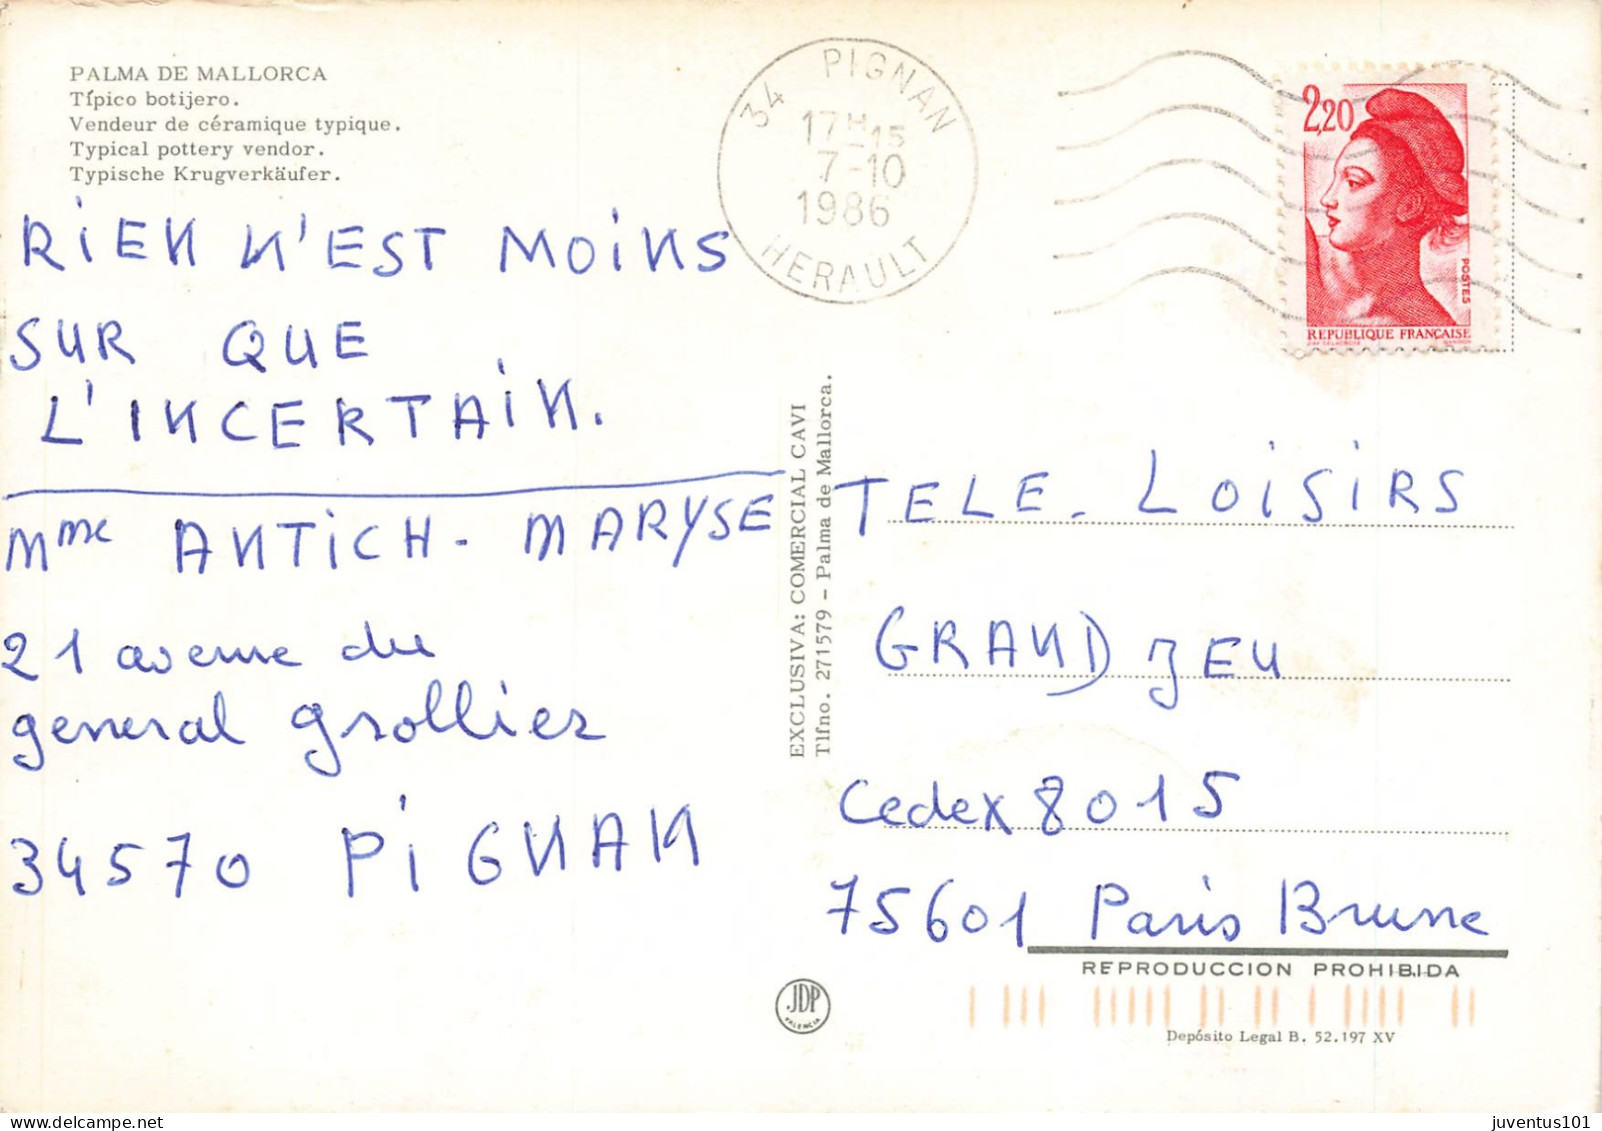 PALMA DE MALLORCA
Típico botijero.
Vendeur de céramique typique.
Typical pottery vendor.
Typische Krugverkäufer.
RIEN N'EST MOINS
SUR QUE
L'INCERTAIN.
Mme ANTICH - MARYSE
21 avenue du
general Grollier
34570 PIGNAN
34 PIGNAN
17H15
7-10
1986
HERAULT
2,20
POSTES
REPUBLIQUE FRANÇAISE
EXCLUSIVA: COMERCIAL CAVI
Tlfno. 271579 - Palma de Mallorca.
TELE. LOISIRS
GRAND JEU
Cedex 8015
75601 Paris Brune
REPRODUCCION PROHIBIDA
JDP
VALENCIA
Depósito Legal B. 52.197 XV
juventus101